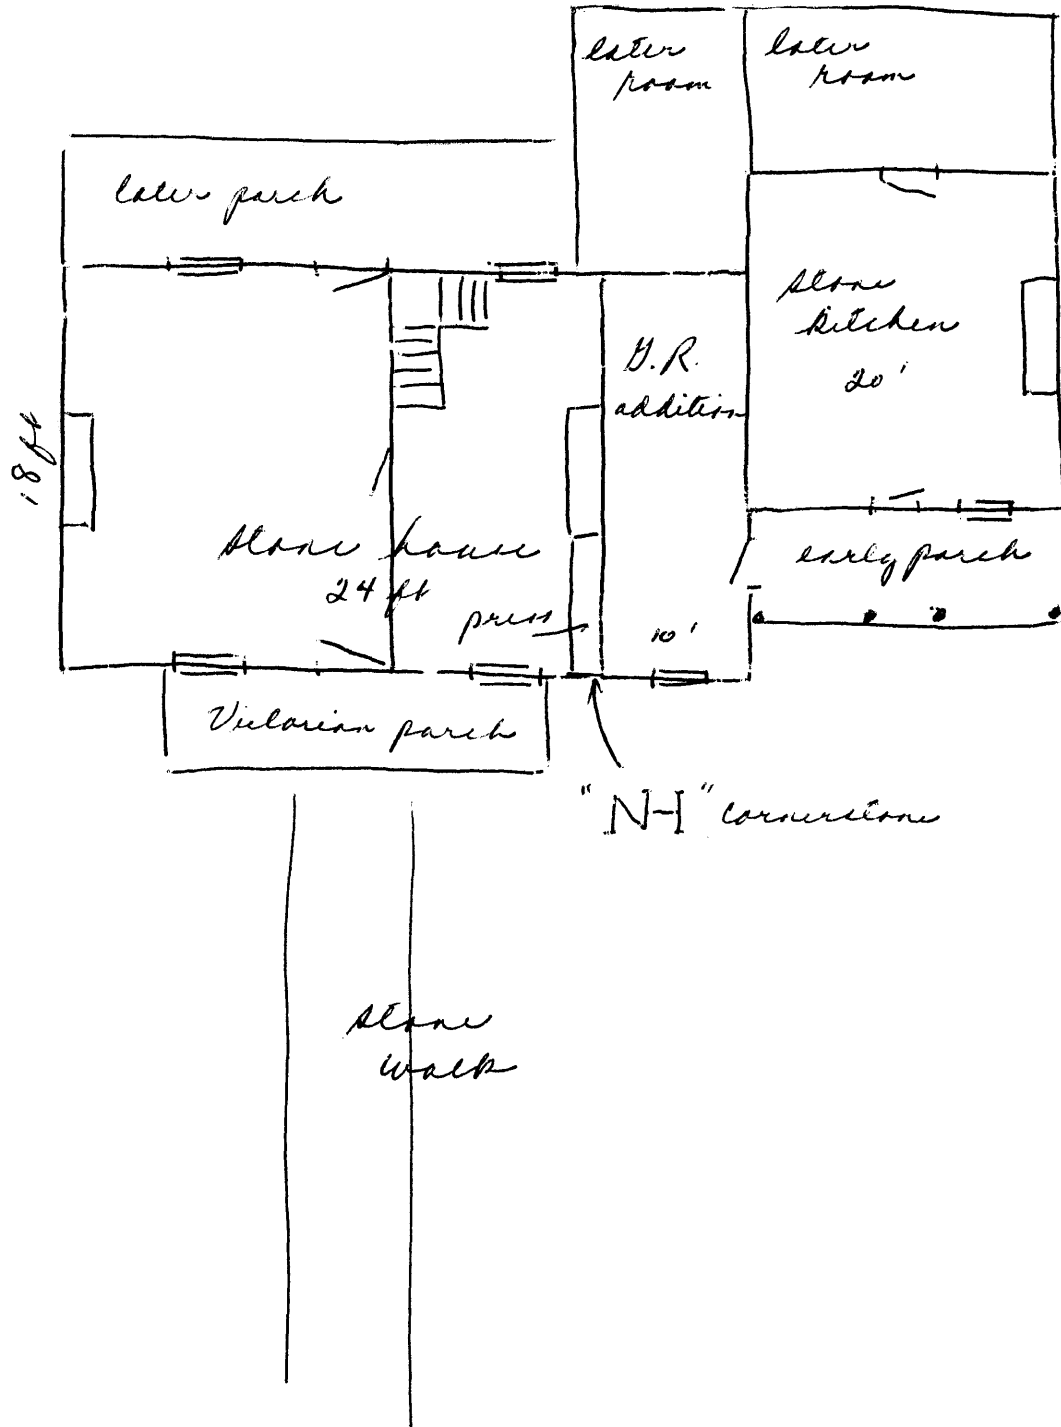 later
room
later
room
later porch
stone
kitchen
20'
G.R.
addition
18 ft
stone house
24 ft
early porch
press
10'
Victorian porch
"NH" cornerstone
stone
walk